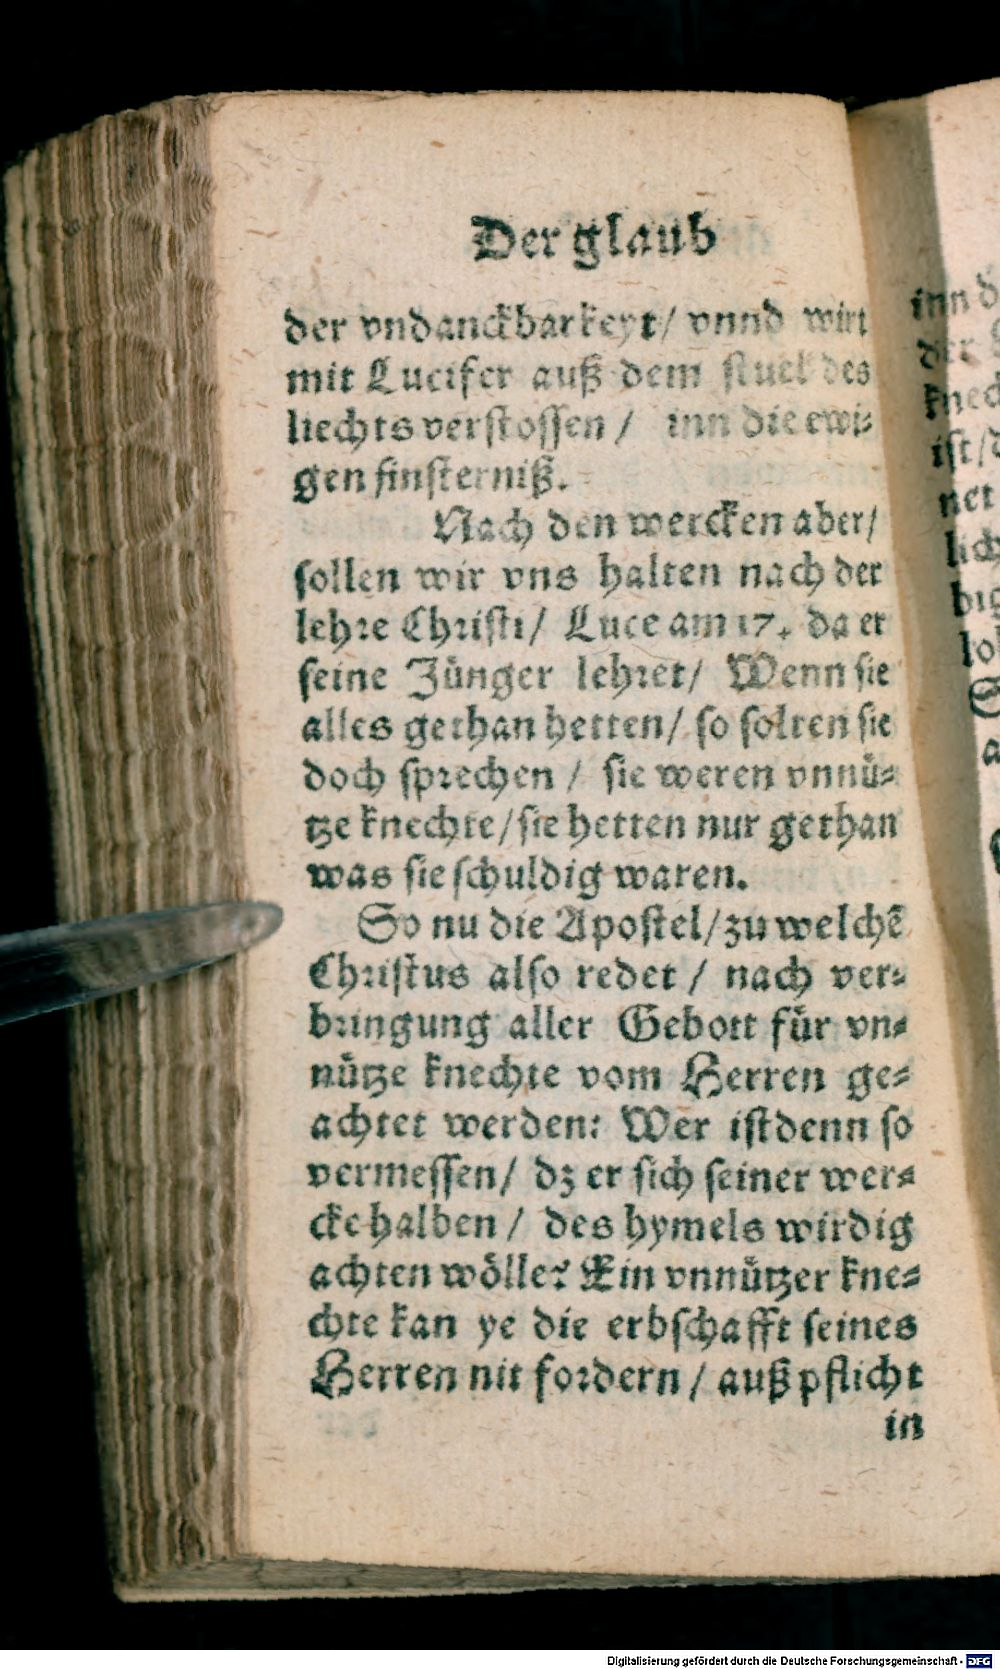 Der glaub
der vndanckbarkeyt/ vnnd wirt
mit Lucifer auß dem stuel des
liechts verstossen / inn die ewi⸗
gen finsterniß.
Nach den wercken aber/
sollen wir vns halten nach der
lehre Christi/ Luce am 17. da er
seine Jünger lehret/ Wenn sie
alles gethan hetten/ so solten sie
doch sprechen / sie weren vnnü⸗
tze knechte/ sie hetten nur gethan
was sie schuldig waren.
So nu die Apostel/ zu welchē
Christus also redet / nach ver⸗
bringung aller Gebott für vn⸗
nütze knechte vom Herren ge⸗
achtet werden: Wer ist denn so
vermessen/ dz er sich seiner wer⸗
cke halben / des hymels wirdig
achten wölle? Ein vnnützer kne⸗
chte kan ye die erbschafft seines
Herren nit fordern / auß pflicht
in
inn
der
knec
ist/
net
lich
Digitalisierung gefördert durch die Deutsche Forschungsgemeinschaft - DFG